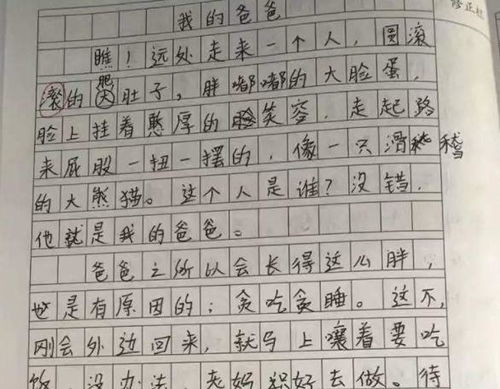 修正栏
我的爸爸
瞧！远处走来一个人，圆滚
滚的肥大肚子，胖嘟嘟的大脸蛋，
脸上挂着憨厚的笑容，走起路
来屁股一扭一摆的，像一只滑稽
的大熊猫。这个人是谁？没错，
他就是我的爸爸。
爸爸之所以会长得这么胖，
也是有原因的：贪吃贪睡。这不，
刚会外边回来，就马上嚷着要吃
饭，没办法，老妈只好去做。待